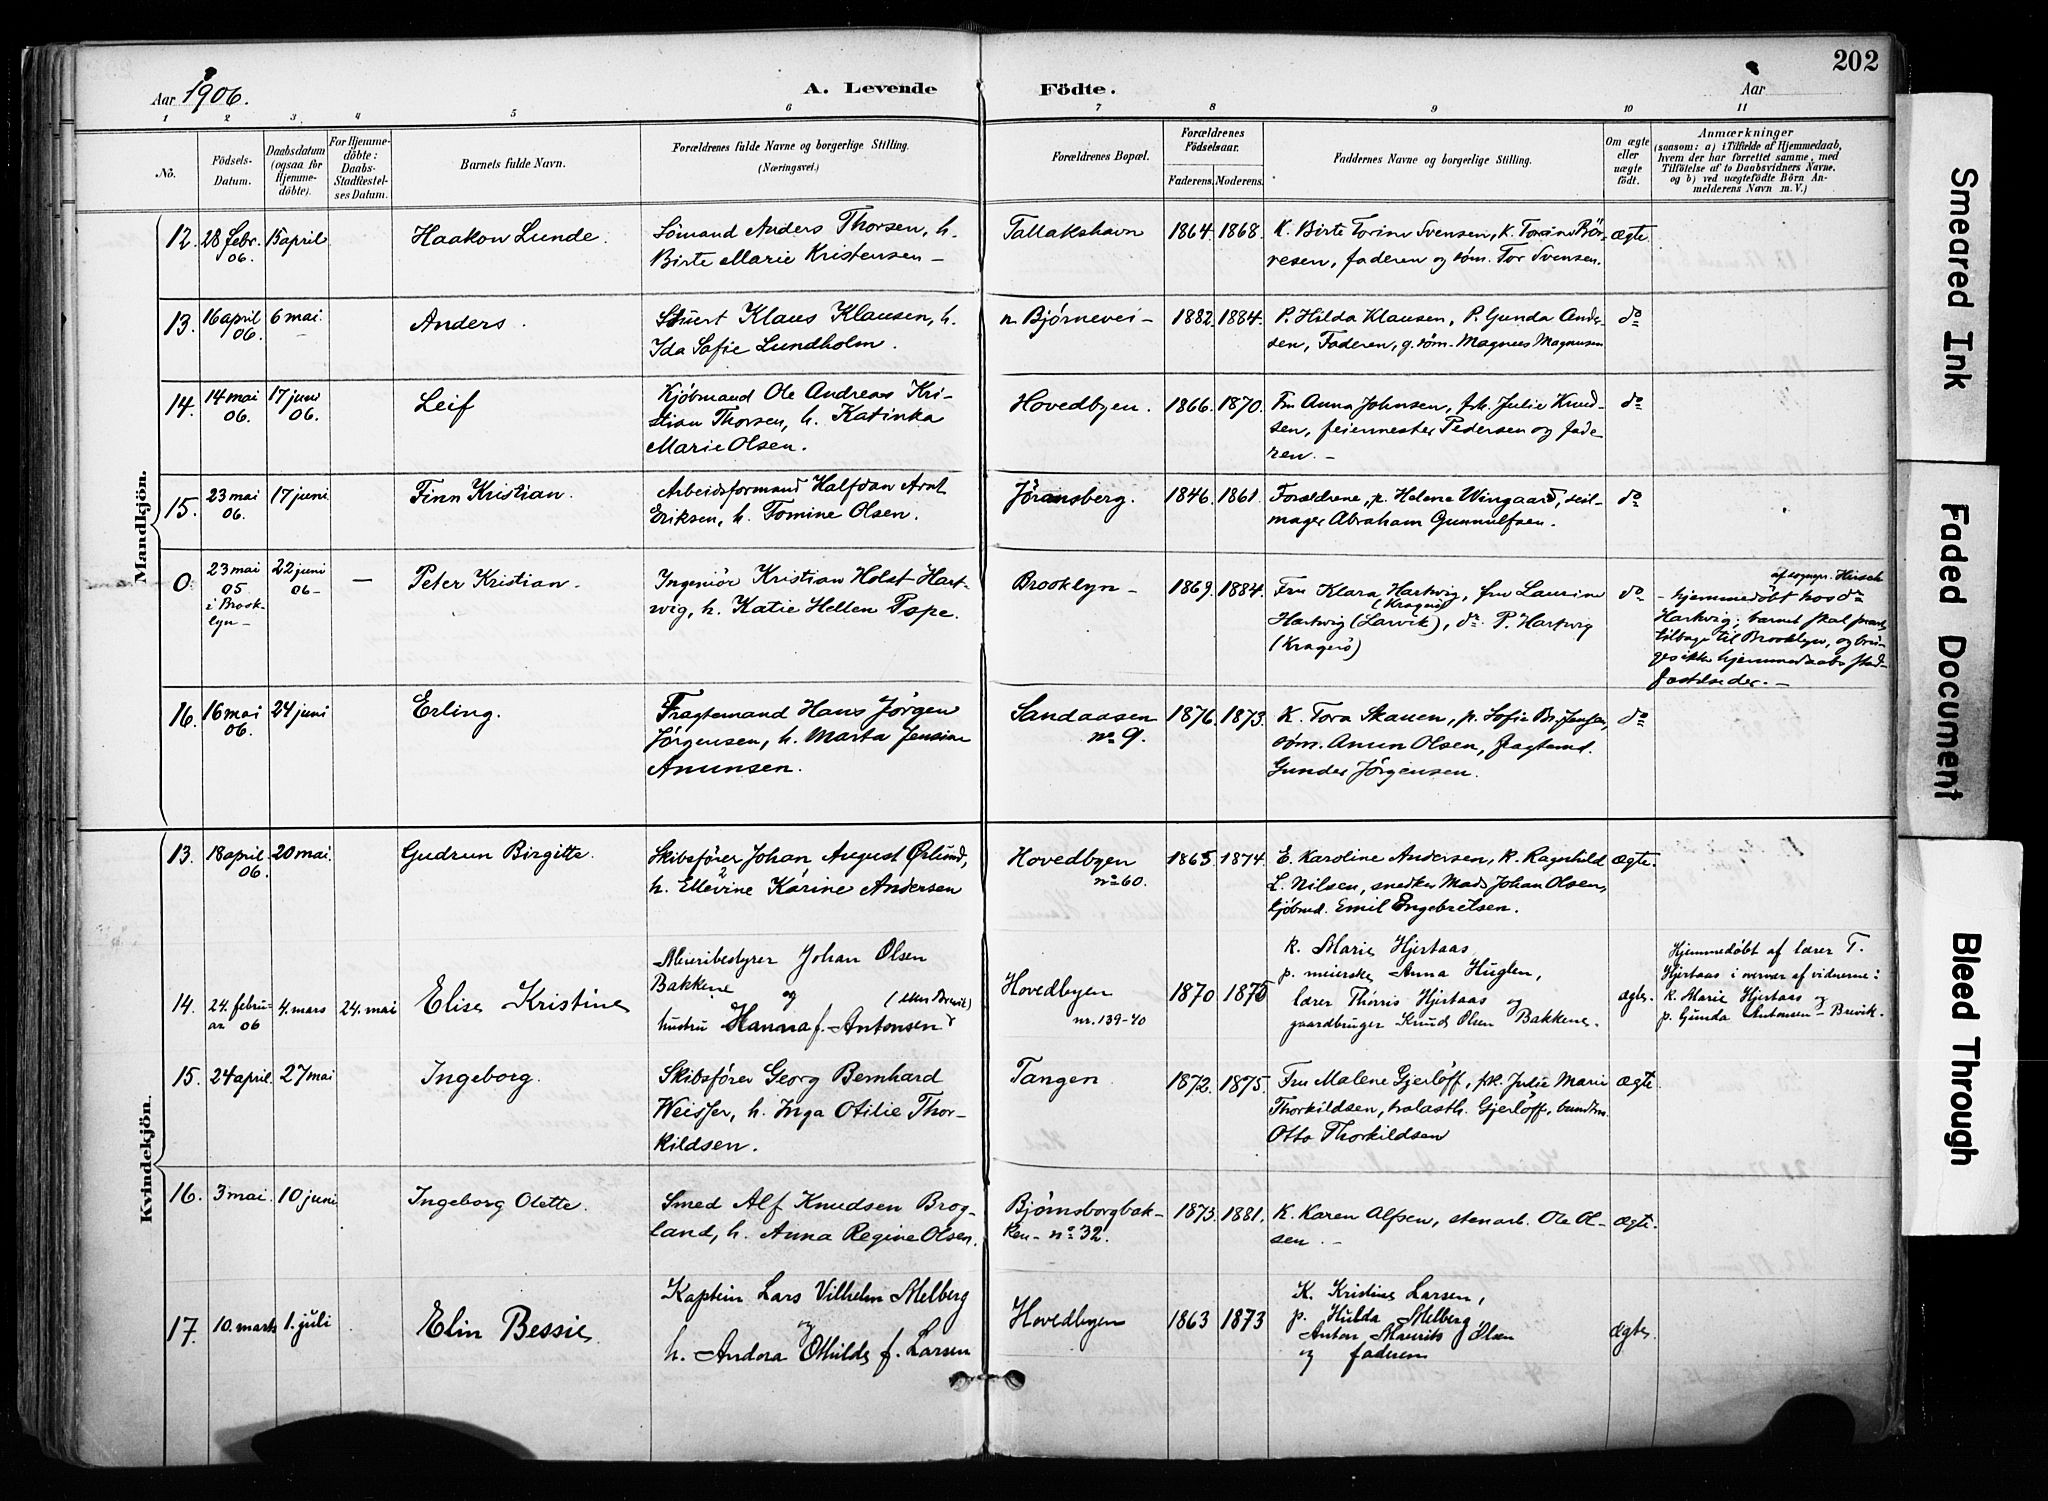 202
Aar 1906.
A. Levende Födte.
Aar
1 2 3 4 5 6 7 8 9 10 11
No.
Födsels-Datum.
Daabsdatum (ogsaa for Hjemmedöbte).
For Hjemmedöbte: Daabs-Stadfæstelses Datum.
Barnets fulde Navn.
Forældrenes fulde Navne og borgerlige Stilling.
(Næringsvei.)
Forældrenes Bopæl.
Forældrenes Födselsaar.
Faderens. Moderens.
Faddernes Navne og borgerlige Stilling.
Om ægte eller uægte födt.
Anmærkninger
(saasom: a) i Tilfælde af Hjemmedaab, hvem der har forrettet samme, med Tilföielse af to Daabsvidners Navne, og b) ved uægtefödte Börn Anmelderens Navn m. V.)
Mandkjön.
12. 28 febr. 06. 15 april Haakon Lunde. Sömand Anders Thorsen, h. Birte Marie Kristensen – Tallakshavn 1864. 1868. K. Birte Torine Svensen, K. Torine faderen og söm. Tor Svensen. ægte
13. 16 april 06. 6 mai. Anders. Klaus Klausen, h. Ida Sofie Lundholm. Bjørnevei – 1882. 1884. P. Hilda Klausen, P. Gunda Andersen, Faderen, söm. Magnus Magnusen do
14. 14 mai 06. 17 juni 06. Leif Kjøbmand Ole Andreas Kristian Thorsen, h. Katinka Marie Olsen. Hovedbyen. 1866. 1870. Fru Anna Johnsen, Julie Knudsen, feiermester Pedersen og faderen. – do
15. 23 mai 06. 17 juni Finn Kristian. Arbeidsformand Halfdan Arnt Eriksen, h. Tomine Olsen. Jøransberg. 1846. 1861. Forældrene, p. Helene Wingaard, seilmager Abraham Gunnulfsen. do
0 23 mai 05 i Brooklyn – 22 juni 06 – — Peter Kristian. Ingeniör Kristian Holst Hartvig, h. Katie Hellen Brooklyn – 1869. 1884. Fru Klara Hartvig, (Kragerö) fru Laurine Hartvig (Larvik), P. Hartvig (Kragerö) do – hjemmedøbt af sognepr. Hirsch hos Hartvig; barnet skal tilbage til Brooklyn, og
16. 16 mai 06. 24 juni Erling. Fragtemand Hans Jörgen Jörgensen, h. Marta Jensine Anunsen. Sandaasen no 9. 1876. 1873. K. Tora Skauen, p. Sofie Br. Jensen, söm. Anun Olsen, fragtemd. Gunder Jörgensen. do
Kvindekjön.
13. 18 april. 06. 20 mai. Gudrun Birgitte. Skibsfører Johan August Ørlund, h. Ellevine Karine Andersen Hovedbyen no 60. 1865 1874. E. Karoline Andersen, K. Ragnhild L. Nilsen, snedker Mads Johan Olsen, kjöbmd. Emil Engebretsen. ægte.
14. 24. februar 06 4. mars 24. mai Elise Kristine Meieribestyrer Johan Olsen Bakkene og hustru Hanna f. Antonsen Hovedbyen nr. 139-40 1870 1875 k. Marie Hjertaas p. meierske Anna Huglen, lærer Thorris Hjertaas og gaardbruger Knud Olsen Bakkene. ægte. Hjemmedøbt af lærer T. Hjertaas i overvær af vidnerne: k. Marie Hjertaas og p. Gunda Antonsen – Brevik.
15. 24 april. 27 mai Ingeborg. Skibsfører Georg Bernhard Weisser, h. Inga Otilie Thorkildsen. Tangen 1872. 1875. Fru Malene Gjerløff, Julie Marie Thorkildsen, Gjerløff, Otto Thorkildsen ægte
16. 3 mai. 10 juni Ingeborg Olette. Smed Alf Knudsen Brogland, h. Anna Regine Olsen. Bjørnsborgbakken – no 32. 1873. 1881. K. Karen Alfsen, stenarb. Ole Olsen. – ægte.
17. 10. marts 1. juli Elin Bessie. Kaptein Lars Vilhelm Melberg og h. Andora Othilde f. Larsen Hovedbyen 1863 1873 K. Kristine Larsen, p. Hulda Melberg Anton Maurits Olsen og faderen ægte.
Smeared Ink
Faded Document
Bleed Through